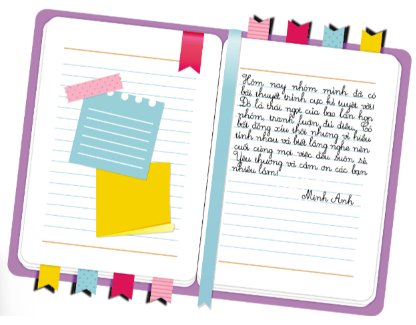 Hôm nay nhóm mình đã có
bài thuyết trình cực kì tuyệt vời!
Đó là trái ngọt của bao lần họp
nhóm, tranh luận đủ điều. Có
bất đồng xíu thôi nhưng vì hiểu
tính nhau và biết lắng nghe nên
cuối cùng mọi việc đều suôn sẻ.
Yêu thương và cảm ơn các bạn
nhiều lắm!
Minh Anh